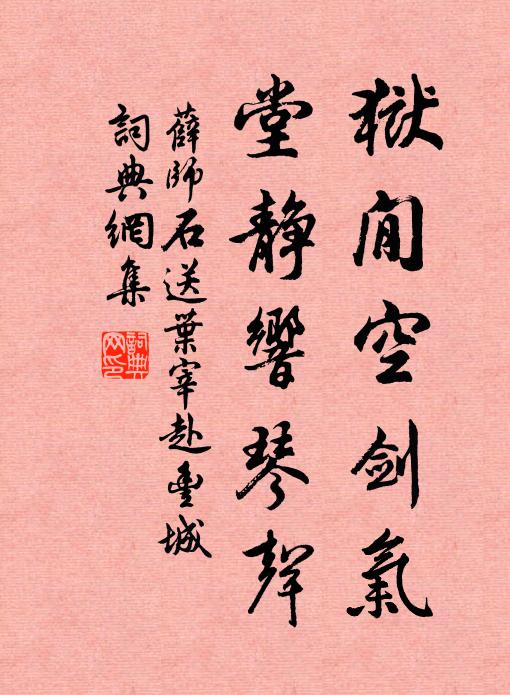 獄閒空劍氣
堂靜響琴聲
薛師石送葉宰赴豐城
詞典網集
詞典網印